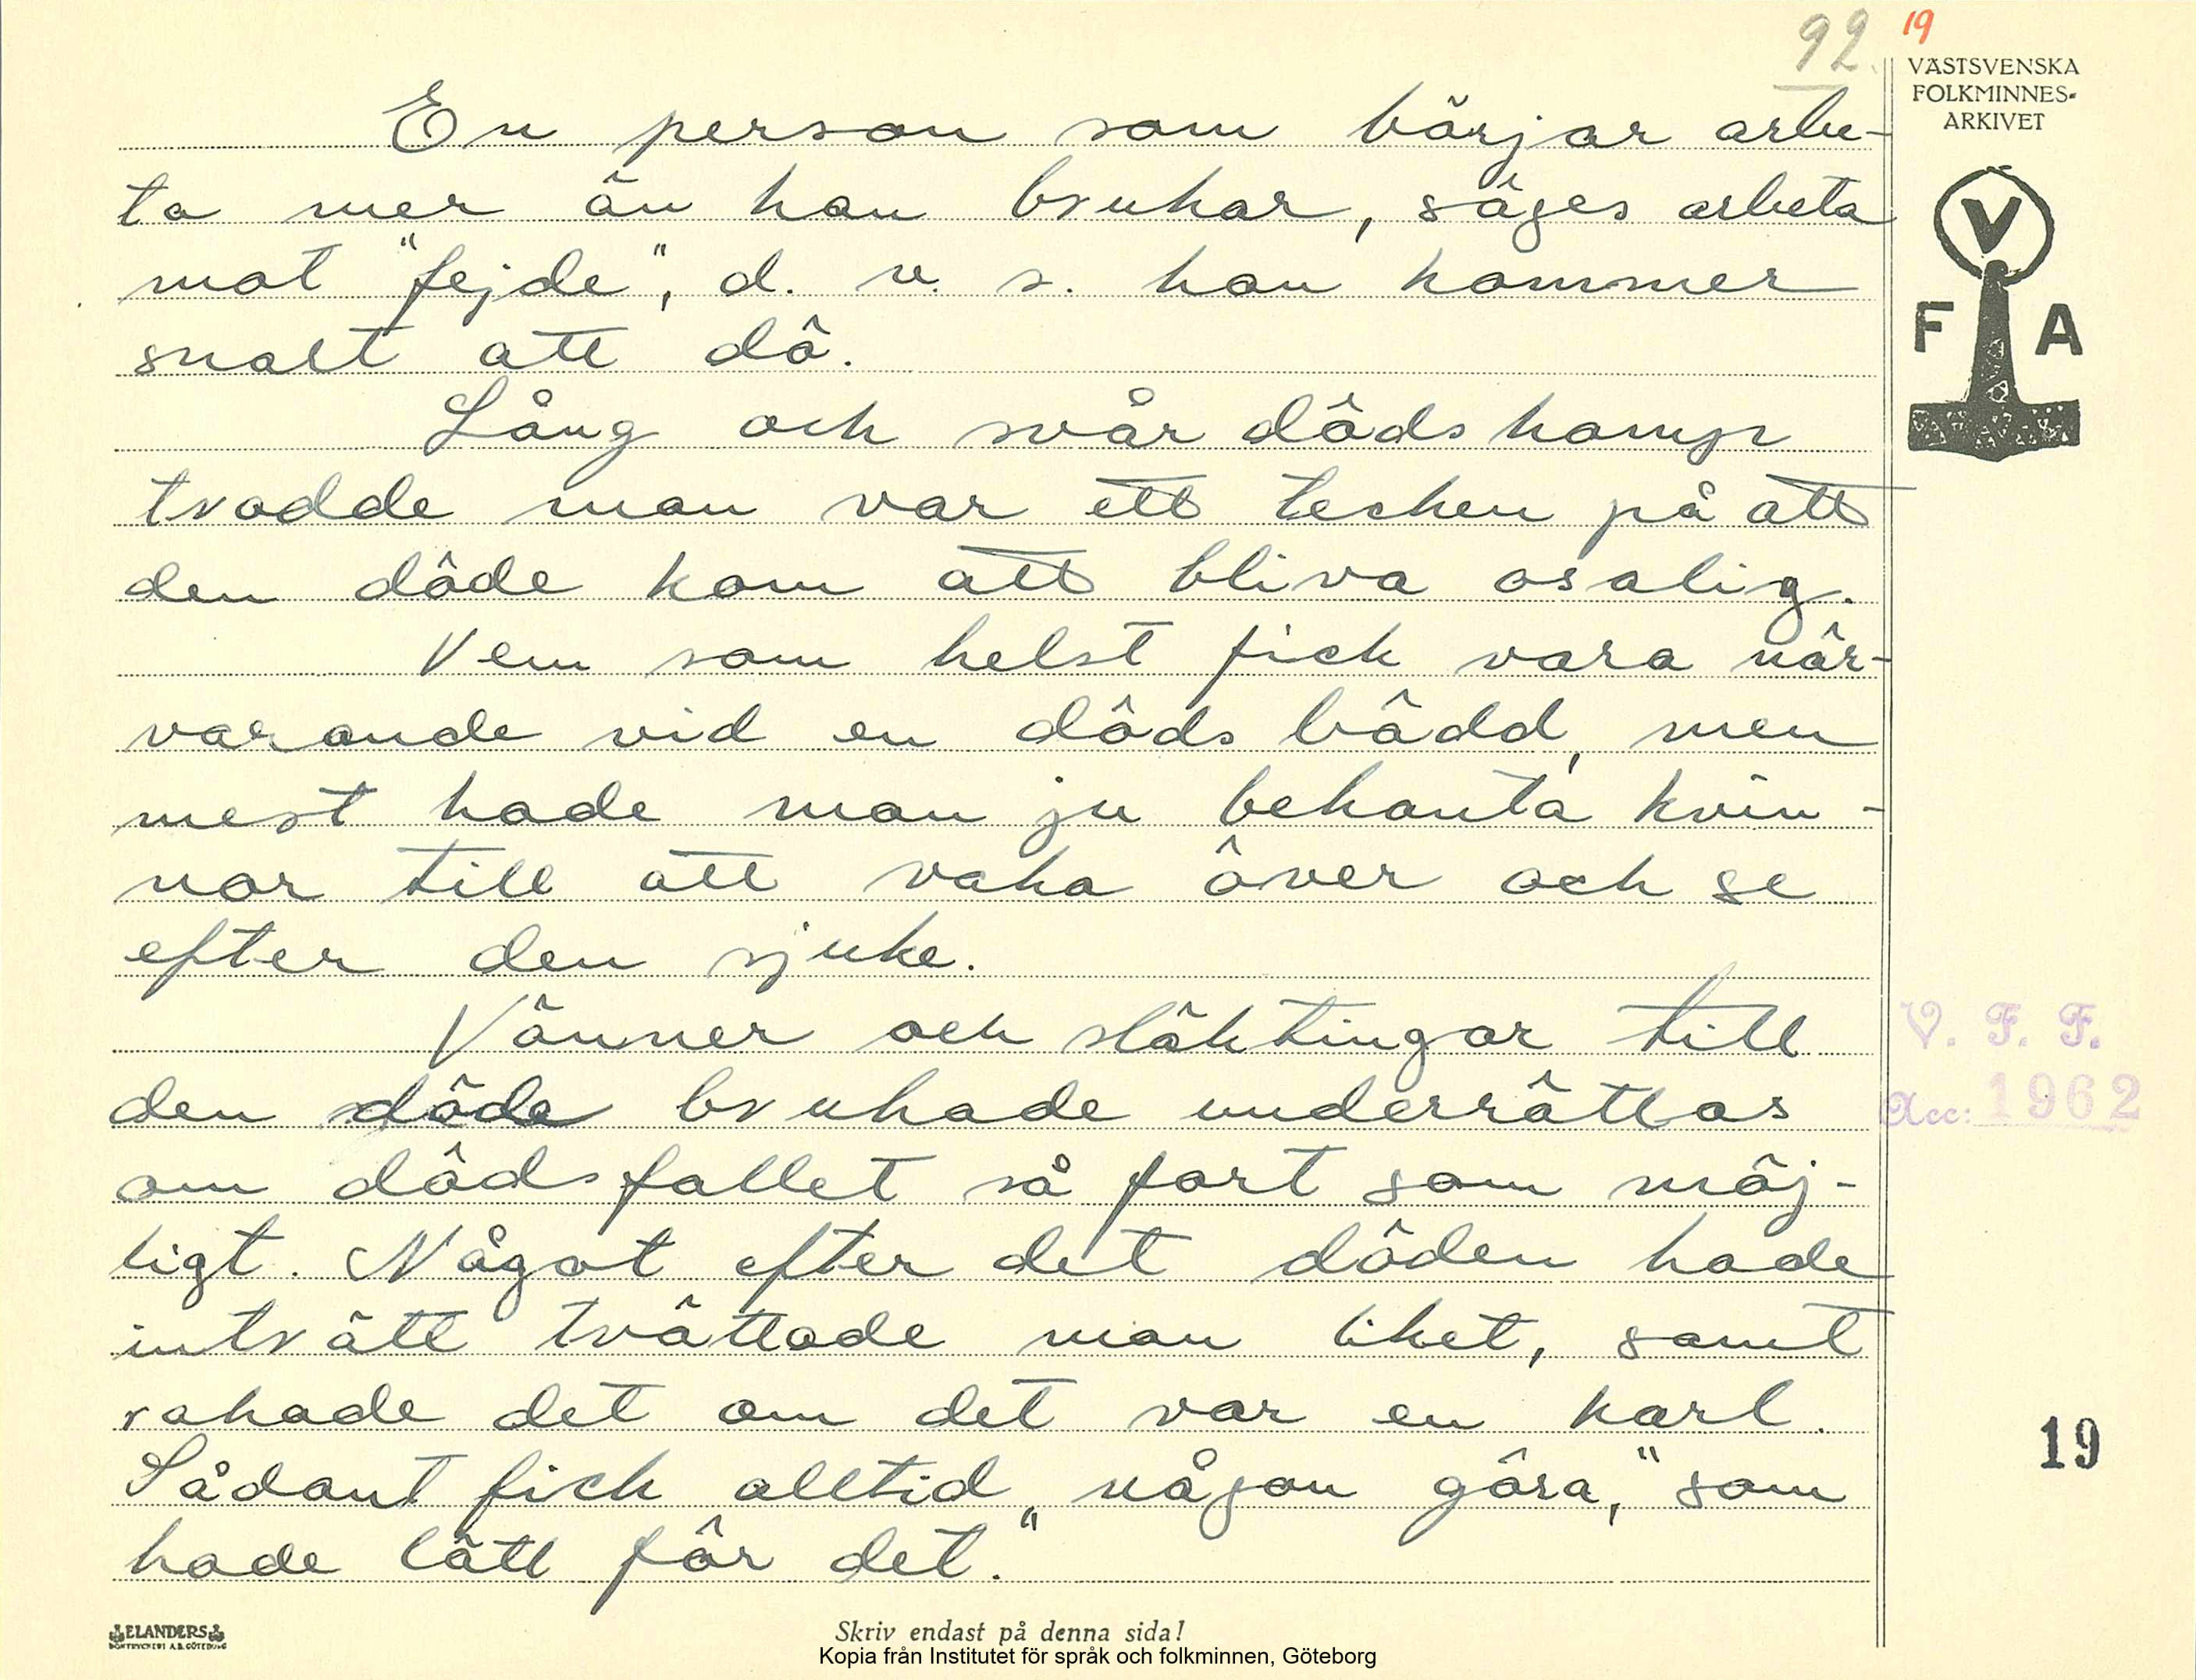 92. 19
VÄSTSVENSKA
FOLKMINNES-
ARKIVET
V
F A
En person som börjar arbe-
ta mer än han brukar, säges arbeta
mot "fejde", d. v. s. han kommer
snart att dö.
Lång och svår dödskamp
trodde man var ett tecken på att
den döde kom att bliva osalig.
Vem som helst fick vara när-
varande vid en dödsbädd, men
mest hade man ju bekanta kvin-
nor till att vaka över och se
efter den sjuke.
Vänner och släktingar till
den döde brukade underrättas
om dödsfallet så fort som möj-
ligt. Något efter det döden hade
inträtt tvättade man liket, samt
rakade det om det var en karl.
Sådant fick alltid "någon göra," som
hade lätt för det."
V. F. F.
Acc: 1962
19
ELANDERS
BOKTRYCKERI A.B. GÖTEBORG
Skriv endast på denna sida!
Kopia från Institutet för språk och folkminnen, Göteborg